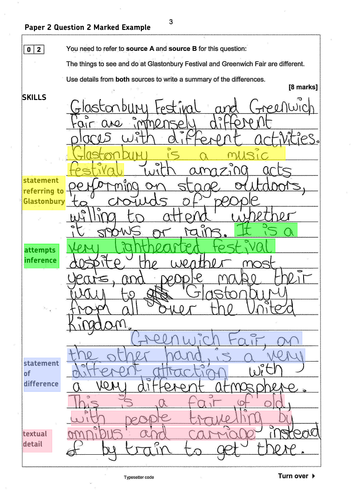 3
Paper 2 Question 2 Marked Example
0 2
You need to refer to source A and source B for this question:
The things to see and do at Glastonbury Festival and Greenwich Fair are different.
Use details from both sources to write a summary of the differences.
[8 marks]
SKILLS
Glastonbury Festival and Greenwich
Fair are immensely different
places with different activities.
Glastonbury is a music
festival with amazing acts
statement
referring to
Glastonbury
performing on stage outdoors,
to crowds of people
willing to attend whether
it snows or rains. It is a
attempts
inference
very lighthearted festival
despite the weather most
years, and people make their
way to Glastonbury
from all over the United
Kingdom.
Greenwich Fair, on
statement
of
difference
the other hand, is a very
different attraction with
a very different atmosphere.
This is a fair of old,
with people travelling by
textual
detail
omnibus and carriage instead
of by train to get there.
Typesetter code
Turn over ►